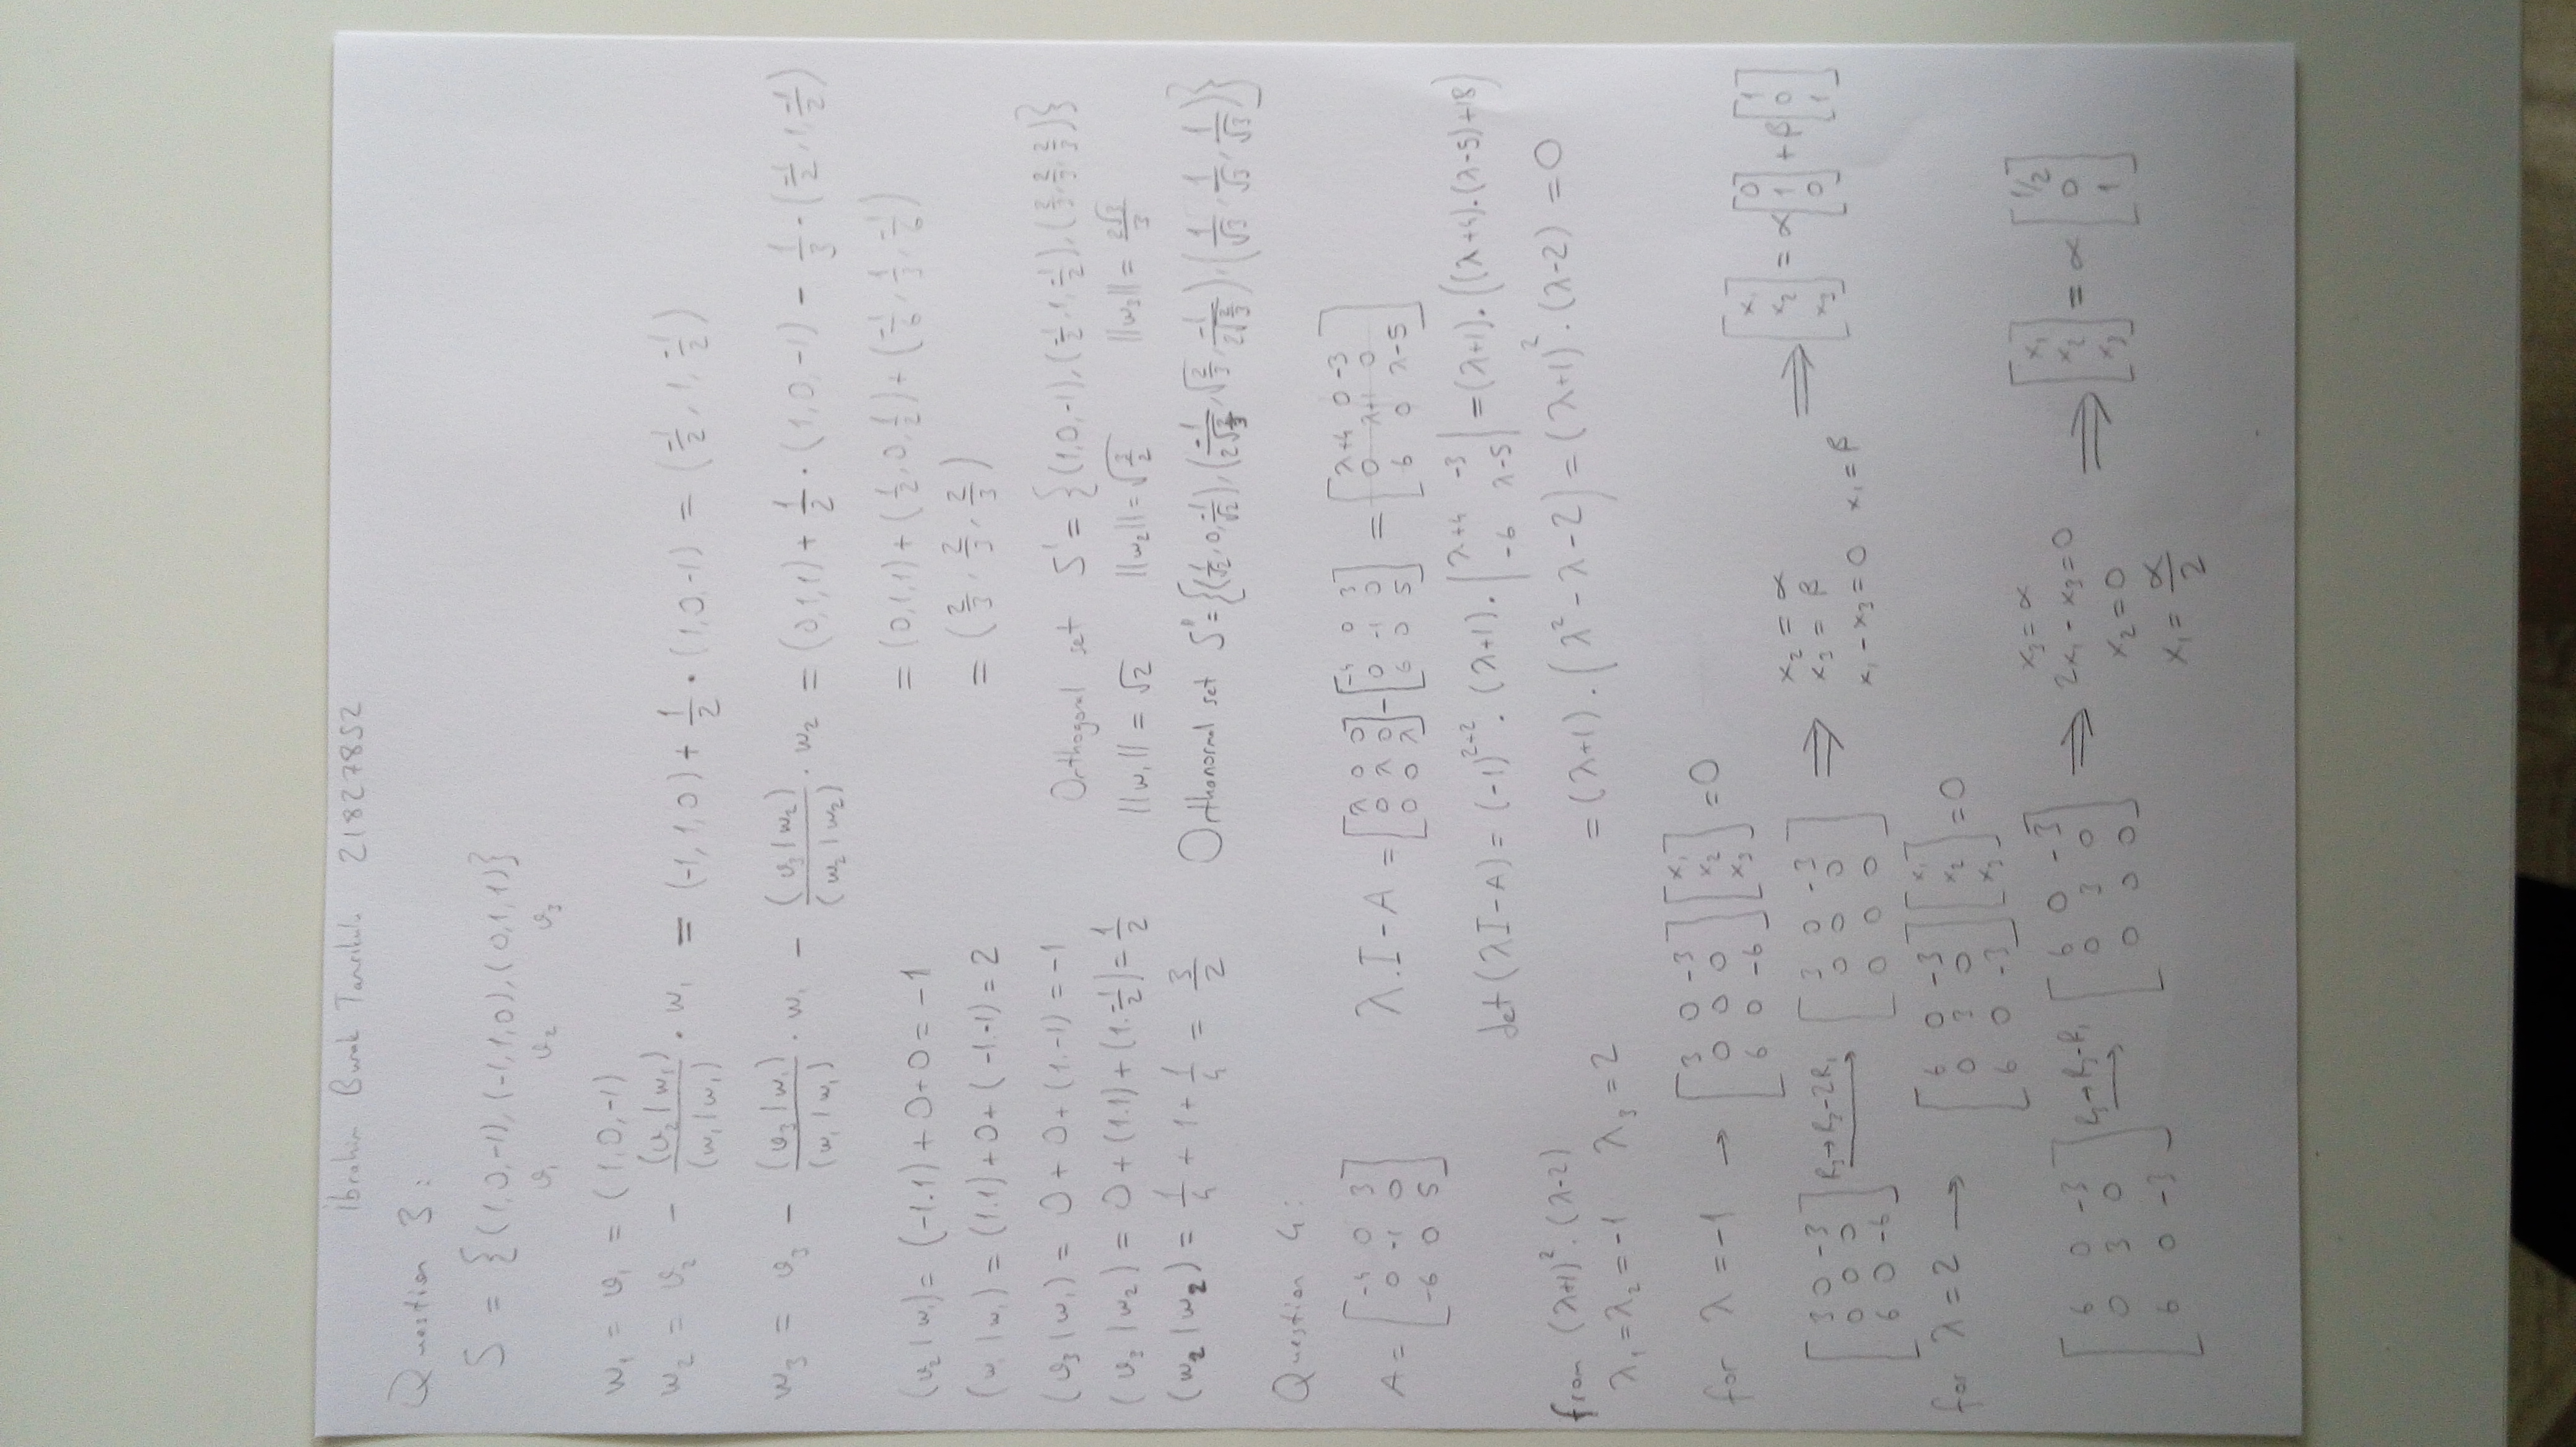 İbrahim Burak Tanrıkulu 21827852
Question 3:
S = {(1,0,-1),(-1,1,0),(0,1,1)}
v₁ v₂ v₃
w₁ = v₁ = (1,0,-1)
w₂ = v₂ - (v₂|w₁)/(w₁|w₁) · w₁ = (-1,1,0) + 1/2 · (1,0,-1) = (-1/2, 1, -1/2)
w₃ = v₃ - (v₃|w₁)/(w₁|w₁) · w₁ - (v₃|w₂)/(w₂|w₂) · w₂ = (0,1,1) + 1/2 · (1,0,-1) - 1/3 · (-1/2, 1, -1/2)
= (0,1,1) + (1/2, 0, 1/2) + (-1/6, 1/3, -1/6)
= (2/3, 2/3, 2/3)
(v₂|w₁) = (-1.1) + 0 + 0 = -1
(w₁|w₁) = (1.1) + 0 + (-1.-1) = 2
(v₃|w₁) = 0 + 0 + (1.-1) = -1
(v₃|w₂) = 0 + (1.1) + (1.-1/2) = 1/2
(w₂|w₂) = 1/4 + 1 + 1/4 = 3/2
Orthogonal set S' = {(1,0,-1), (-1/2, 1, -1/2), (2/3, 2/3, 2/3)}
||w₁|| = √2 ||w₂|| = √(3/2) ||w₃|| = 2√3/3
Orthonormal set S'' = {(1/√2, 0, -1/√2), (-1/(2√(3/2)), √(2/3), -1/(2√(3/2))), (1/√3, 1/√3, 1/√3)}
Question 4:
A = [-4 0 3; 0 -1 0; -6 0 5] λ.I-A = [λ 0 0; 0 λ 0; 0 0 λ] - [-4 0 3; 0 -1 0; 6 0 5] = [λ+4 0 -3; 0 λ+1 0; 6 0 λ-5]
det(λI-A) = (-1)²⁺² . (λ+1) . |λ+4 -3; -6 λ-5| = (λ+1) . ((λ+4).(λ-5)+18)
= (λ+1) . (λ²-λ-2) = (λ+1)² . (λ-2) = 0
from (λ+1)² . (λ-2)
λ₁ = λ₂ = -1 λ₃ = 2
for λ = -1 → [3 0 -3; 0 0 0; 6 0 -6] [x₁; x₂; x₃] = 0
[3 0 -3; 0 0 0; 6 0 -6] R₃→R₃-2R₁ [3 0 -3; 0 0 0; 0 0 0] ⇒ x₂ = α
x₃ = β
x₁ - x₃ = 0 x₁ = β
⇒ [x₁; x₂; x₃] = α[0; 1; 0] + β[1; 0; 1]
for λ = 2 → [6 0 -3; 0 3 0; 6 0 -3] [x₁; x₂; x₃] = 0
[6 0 -3; 0 3 0; 6 0 -3] R₃→R₃-R₁ [6 0 -3; 0 3 0; 0 0 0] ⇒ x₃ = α
2x₁ - x₃ = 0
x₂ = 0
x₁ = α/2
⇒ [x₁; x₂; x₃] = α [1/2; 0; 1]